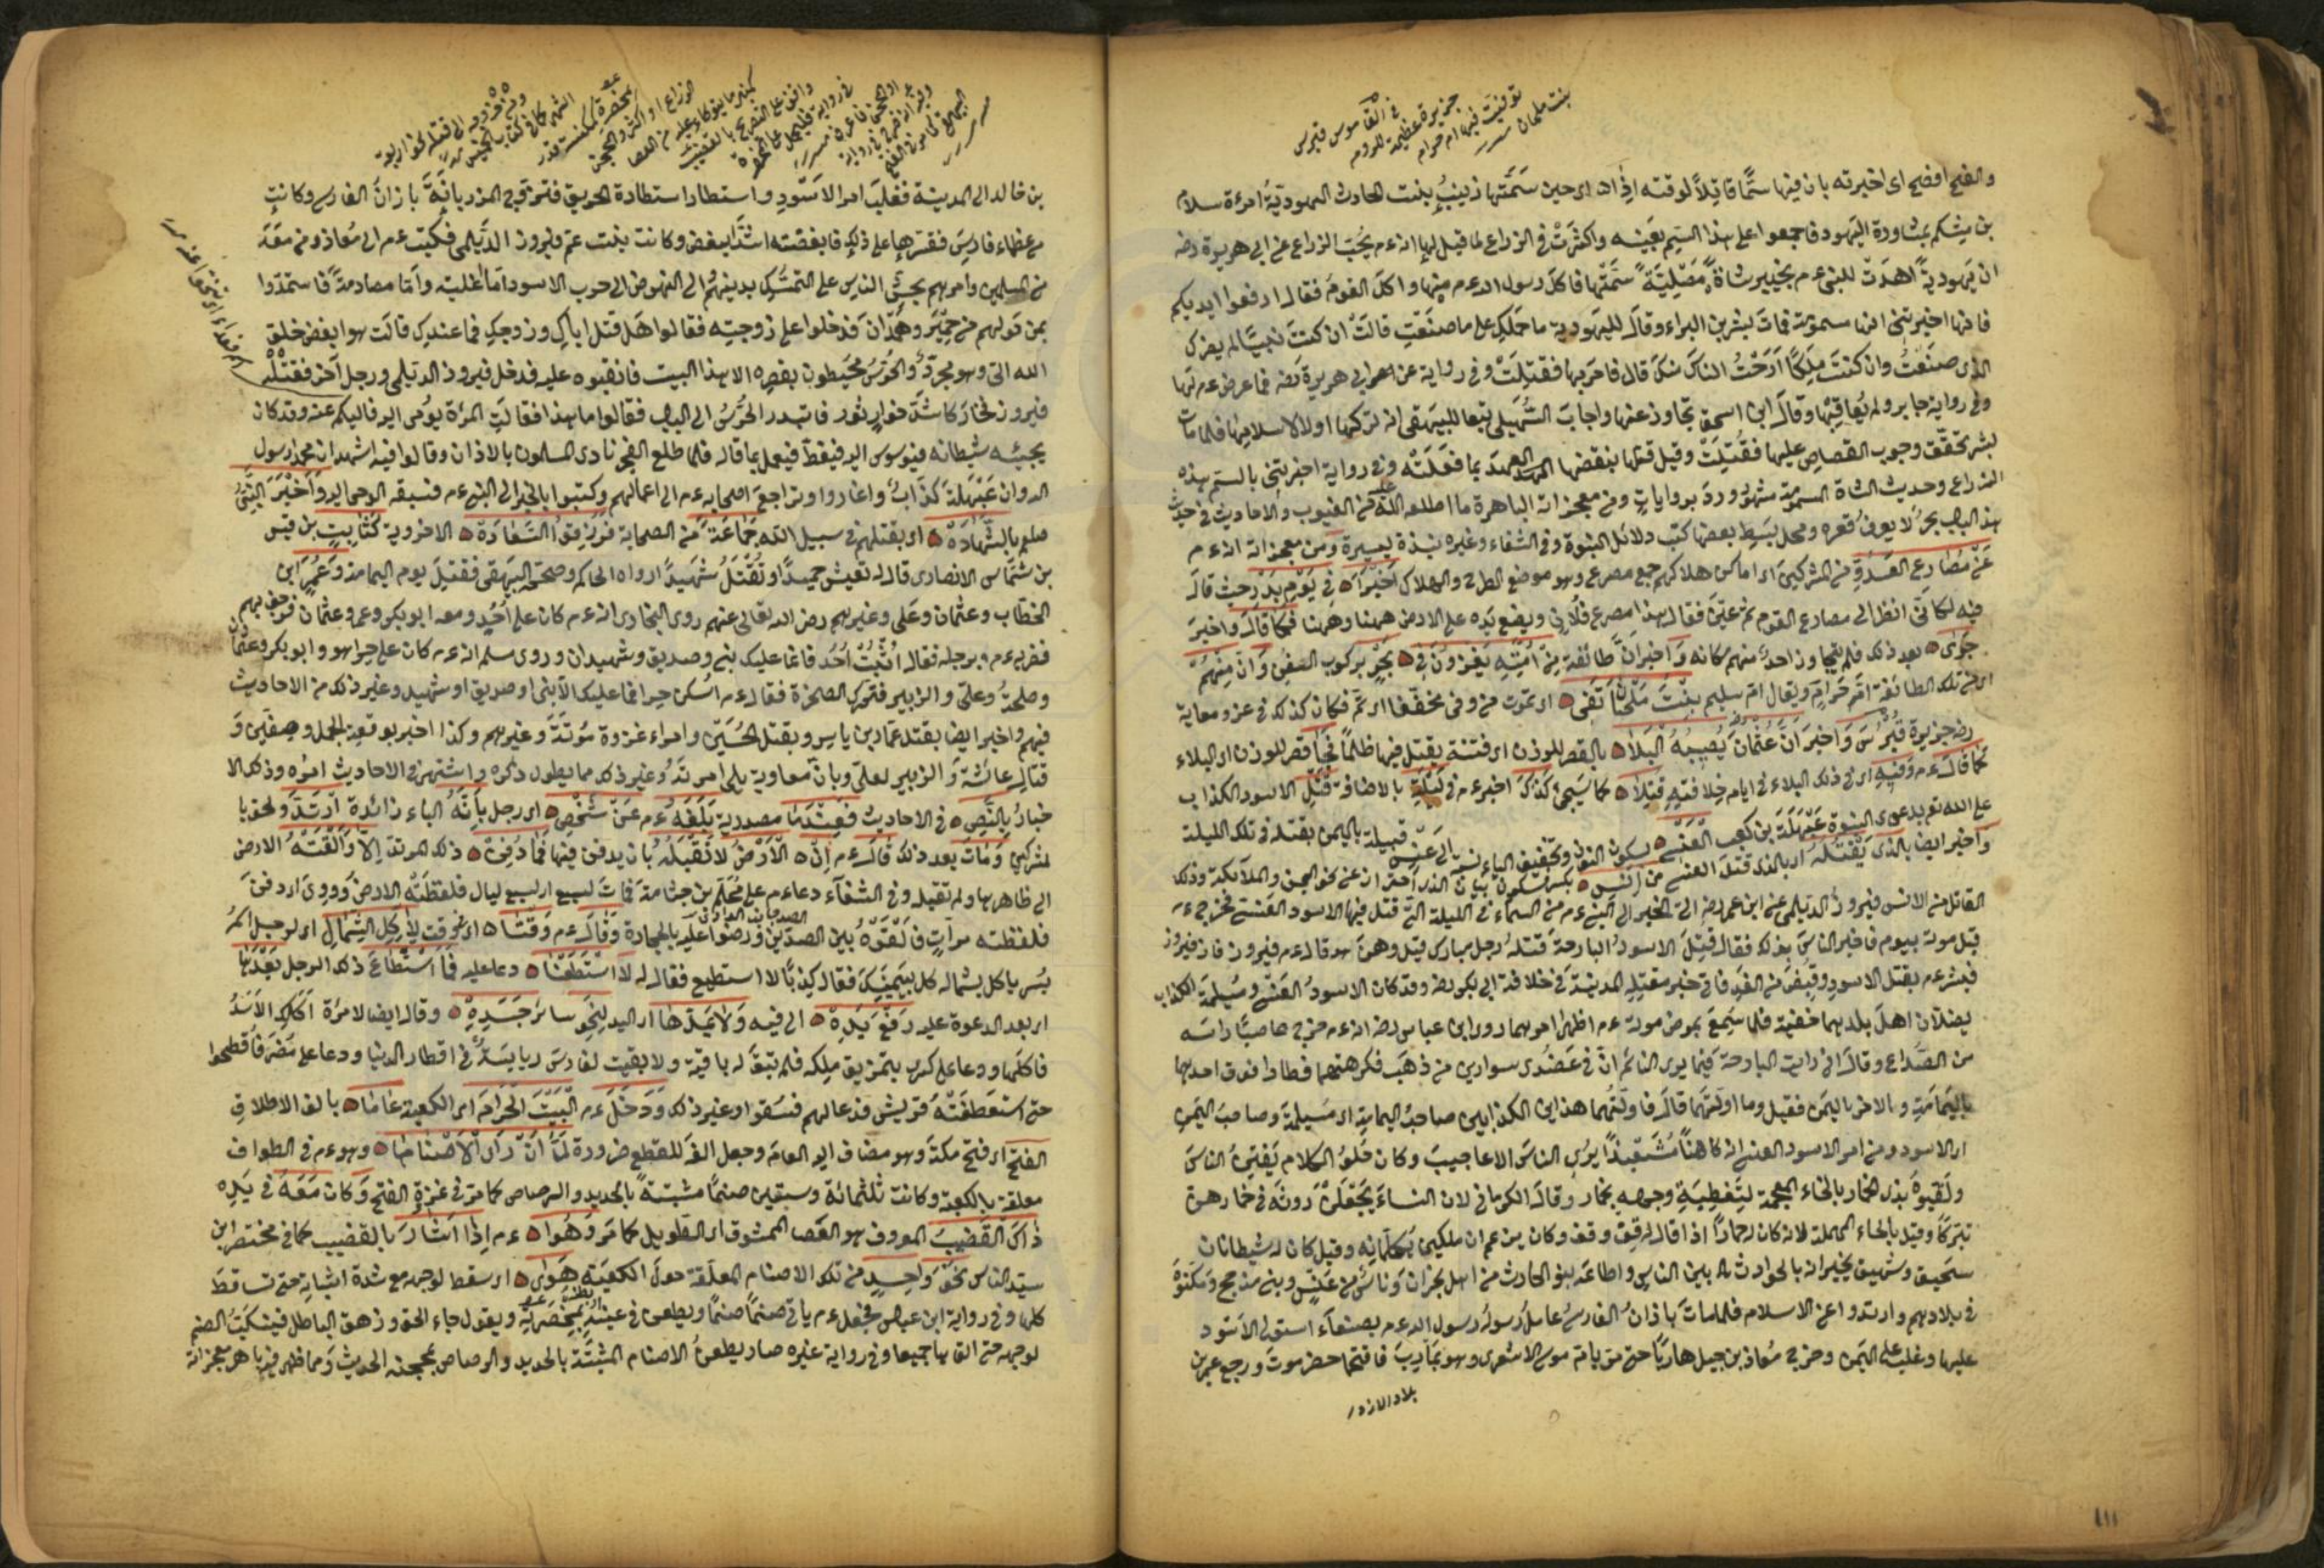 في القاموس قبرس
جزيرة عظيمة للروم
توفيت فيها ام حرام
بنت ملحان
والفتح افصح اى اخبرته بان فيها سمًّا قاتلاً لوقته اذ اى حين سَمَّتها زينبُ بنت الحارث اليهوديّةُ امرءة سلام
بن مشكم بمشاورة اليهود فاجمعوا على هذا السم بعينه واكثرتْ في الذراع لما قيل لها انه عم يُحبّ الذراع عن ابي هريرة رضه
ان يهوديةً اهدَتْ للنبى عم بخيبر شاةً مَصْليَّةً سَمَّتْها فاكل رسول الله عم منها واكل القوم فقال ارفعوا ايديكم
فانها اخبرتني انها مسمومة فمات بشر بن البراء وقال لليهودية ما حملكِ على ما صنعتِ قالتْ ان كنتَ نبيًّا لم يضرك
الذى صنعتُ وان كنتَ ملِكًا ارَحْتُ الناسَ منكَ قال فامر بها فقتِلَتْ وفي رواية عن ابي هريرة رضه فما عرض عم لها
وفي رواية جابر ولم يُعاقِبْها وقال ابن اسحق تجاوز عنها واجابَ السُّهيلى تبعا للبيهقى انه تركها اولا لاسلامها فلما مات
بشر تحقّق وجوب القصاص عليها فقُتِلَتْ وقيل قتلها بنقضها العهدَ بما فعلَتْه وفي رواية اخبرتني بالسم هذه
الذراع وحديث الشاة المسمومة مشهور وردَ بروايات ومن معجزاته الباهرة ما اطلعه الله عليه من الغيوب والاحاديث في
هذا الباب بحرٌ لا يعرف قعره ومحل بسط بعضها كتب دلائل النبوة وفي الشفاء وغيره نبذة يسيرة ومن معجزاته انه عم
عَنْ مَصَارع العَدُوِّ من المشركين اى اماكن هلاكهم جمع مصرع وهو موضع الطرح والهلاك اَخبَرَ في يَوم بَدْر حيث قال
فيه لكانّى انظر الى مصارع القوم ثم عيّن فقال هذا مصرع فلانٍ ويضع يَده على الارض ههنا وههنا فكما قال واخبر
جَرَى بعد ذلك فلم يتجاوز احدٌ منهم مكانه وَاَخبَرَ انَّ طائفةً مِنْ امّتِه يَغزُونَ في بَحْرٍ بركوب السفن وَانَّ مِنْهُمْ
اى من تلك الطائفة امَّ حَرامٍ ويقال امّ سليم بنْتَ مَلْحَان تَفِى اى تموت من وفى مخففا اى ثَمَّ فكان كذلك في غزو معاوية
رضه جزيرة قُبْرُسَ وَاَخبَرَ انَّ عُثمانَ يُصيبُهُ الْبَلا بالقصر للوزن اى فتنة يقتل فيها ظلماً فَجَا قصر للوزن اى البلاء
كما قال عم وَفيهِ اى في ذلك البلاء في ايام خلافته قُتِلا كما سَيجئ كذلكَ اخبر عم في لَيْلَةِ بالاضافة قَتْلِ الاسود الكذاب
على الله تع بدعوى النبوة عَبْهَلَةَ بن كعب الْعَنْسِى بسكون النون وتخفيف الياء نسبة الى عَنْس قبيلة باليمن بقتله في تلك الليلة
وَاخبر ايضا بالَّذى يَقْتُلُهُ اى بالذى قتل العنسى من اِنْسِ بكسر فسكون بيان الذى احترازا عن نحو الجن والملائكة وذلك
القاتل من الانس فيروز الديلمى عن ابن عمر رضه اتى الخبر الى النبي عم من السماء في الليلة التى قتل فيها الاسود العنسى فخرج عم
قبل موته بيوم فاخبر الناسَ بذلك فقال قُتِلَ الاسودُ البارحةَ قتلهُ رجل مبارك قيل ومن هو قال عم فيروز فاز فيروز
فبشر عم بقتل الاسود وقُبِض من الغد فاتى خبر مقتله المدينةَ في خلافة ابي بكر رضه وقد كان الاسودُ العَنسى ومُسيلمة الكذاب
يضلان اهل بلدهما خفية فلما سُمِعَ بمرض موته عم اظهرا امرهما روى ابن عباس رضه انه عم خرج عاصبًا راسَه
من الصُّداع وقال انى رايت البارحة فيما يرى النائم انّ في عَضُدى سوارين من ذهب فكرهتهما فطارا فوق احدهما
باليَمامَةِ والاخر باليمن فقيل وما اولتَهما قال فاولتُهما هذان الكذابين صاحبُ اليمامة اى مُسيلمة وصاحبُ اليمن
اى الاسود ومن امر الاسود العنسى انه كان كاهناً مُشَعْبِذًا يُرى الناسَ الاعاجيبَ وكان حُلوُ الكلام يَفتِنُ الناسَ
ولقبوه بذى الخمار بالخاء المعجمة لتَغطِيَةِ وجهه بخمار وقال الكرمانى لان النساءَ يَجعَلنَ دونَه في خمارهنّ
تبرّكاً وقيل بالحاء المهملة لانه كان له حمارٌ اذا قال له قِفْ وقف وكان يزعم ان ملكين يُكلّمانِه وقيل كان له شيطانان
سَحيق وشهيق يُخبران بالحوادث له بين الناس واطاعه بنو الحارث من اهل نجران وناسٌ من عَنسٍ وبنى مذحج ومكثوا
في بلادهم وارتدوا عن الاسلام فلما مات باذانُ الفارسى عاملُ رسولُ الله عم بصنعاء استولى الاسود
عليها وغلب على اليمن وخرج معاذ بن جبل هاربًا حتى مرّ بابى موسى الاشعرى وهو بمأرِب فاقتحما حضرموت ورجع عمرو بن
بلاد الازد
١١١
بن خالد الى المدينة فغلبَ امر الاسَود واستطار استطارة الحريق فتزوج المرزبانةَ بازانَ الفارسى وكانت
من عظماء فارس فقسَرها على ذلك فابغضته اشدَّ البغض وكانت بنت عم فيروز الدّيلمى فكتب عم الى مُعاذ ومن معَه
من المسلمين وامرهم بحثّ الناس على التمسّك بدينهم الى النهوض الى حرب الاسود امّا غلبة وامّا مصادمةً فاستمدّوا
بمن حولهم من حميرَ وهمْدان فدخلوا على زوجته فقالوا هل قتل اباكِ وزوجكِ فما عندك قالت هو ابغض خلق
الله الىّ وهو مجرّدٌ والحُرّسُ محيطون بقصره الا هذا البيت فانقبوه عليه فدخل فيروز الديلمى ورجل آخر فقتلْه
فيروز فخارَ كاشَدّ خوار ثور فابتدر الحُرّسُ الى الباب فقالوا ما هذا فقالت المرأة يُوحى اليه فاليكم عنه وقد كان
يجيئه شيطانه فيوسوس اليه فيقظ فيعمل بما قاله فلما طلع الفجر نادى المسلمون بالاذان وقالوا فيه اشهد ان محمدا رسول
الله وان عَبْهَلةَ كذّابٌ واغاروا وتراجعَ اصحابه عم الى اعمالهم وكتبوا بالخبر الى النبي عم فسبقه الوحى اليه وَاَخبَرَ النبىُّ
صلعم بالشّهادَةِ اى بقتلهم في سبيل الله جَماعَةً من الصحابة فرُزِقوُا السَّعَادَةَ الاخروية كثَابِتِ بن قيس
بن شمّاس الانصارى قال له تعيش حميدًا وتُقتَلُ شهيدًا رواه الحاكم وصححه البيهقى فقُتِل يوم اليمامة وعُمَر ابن
الخطاب وعثمان وعلى وغيرهم رضى الله تعالى عنهم روى البخارى انه عم كان على اُحُدٍ ومعه ابو بكر وعمر وعثمان فرجف بهم
فضربه عم برجله فقال اُثبُتْ اُحُد فانما عليك نبى وصديق وشهيدان وروى مسلم انه عم كان على حِرا هو وابو بكر وعثمان
وطلحةُ وعلىّ والزبير فتحركت الصخرة فقال عم اسْكن حِرا فما عليك الا نبى او صديق او شهيد وغير ذلك من الاحاديث
فيهم واخبر ايضا بقتل عمار بن ياسر وبقتل الحُسَين وامراء غزوة مُوتةَ وغيرهم وكذا اخبر بوقعة الجمل وصفّين وَ
قتال عائشةَ وَ الزبير لعلىّ وبانّ معاوية يلى امر تهُ وغير ذلك مما يطول ذكره واشتهر في الاحاديث امرُه وذلك الا
خبارُ بالنّصِّ في الاحاديث فعِنْدَما مصدرية بَلَغَهُ عم عَنْ شَخْصٍ اى رجل باَنَّهُ الباء زائدة ارتَدَّ ولحق با
لمشركين وَمَاتَ بعد ذلك قالَ عم اِنَّ الاَرْضَ لا تَقبَلُهُ بان يدفن فيها فَما دُفِنَ ذلك المرتد اِلاّ وَاَلْقَتْهُ الارض
الى ظاهرها ولم تقبله وفي الشفاء دعا عم على مُحَلِّم بن جثامة فمات لسبع ليال فلفظَتْه الارضَ ووُوِىَ اى دفنَ
فلفظته مرّاتٍ فاَلقَوْهُ بين الصدّين ورضموا عليه بالحجارة وقَالَ عم وَقتًا اى في وقت لاِكِلِ الشِّمالِ اى لرجل اسمُه
بُسر ياكل بشماله كل بيمينِكَ فقال كِذبًا لا استطيع فقال له لاَ اسْتَطَعْتَا دعا عليه فَما اسْتَطاعَ ذلك الرجل بَعْدَها
اى بعد الدعوة عليه رَفْعَ يَدِهِ الى فيه وَلا يَمُدّها اى اليد لِنَحوِ سائر جَسَدِهِ وقال ايضا لامرُة اَكَلكِ الاَسَدُ
فاكلها ودعا على كسرى بتمزيق ملكه فلم تبقَ له باقية ولا بقيت لفارس رياسةٌ في اقطار الدنيا ودعا على مُضَر فاُقحطوا
حتى استعطفَتْهُ قريش فدعا لهم فسُقوا وغير ذلك وَدَخَلَ عم الْبَيْتَ الْحَرامَ اى الكعبة عَامَا بالف الاطلاق
الفتح اى فتح مكة وهو مضاف اليه العام وجعل الفَ للقطع ضرورة لمّا اَنْ رَاَى الاَصْنَامَا وهو عم في الطواف
معلقة بالكعبة وكانت ثلثمائة وستين صنماً مثبتةً بالحديد والرصاص كما مرّ في غزة الفتح وَكانَ مَعَهُ في يَدِهِ
ذاكَ القَضيبَ المعروف هو العَصا الممشوق اى الطويل كما مَر وَهُوا عم اِذا اَشارَ بالقضيب كما في مختصر ابن
سيّد الناس نَحْوَ وَاحِدٍ من تلك الاصنام المعلّقة حولَ الكعبة هَوى اى سقط لوجهه مع شدة اثباته حتى تساقط
كلها وفي رواية ابن عباس فجعل عم ياتى صنماً صنماً ويطعن في عينه بمِخْصَرَتِه ويقول جاء الحق وزهق الباطل فينكَبُّ الصنم
لوجهه حتى القاها جميعا وفي رواية غيره صار يطعن الاصنام المثبتة بالحديد والرصاص بمحجنه الحديث ومما ظهر فيه باهر معجزاته